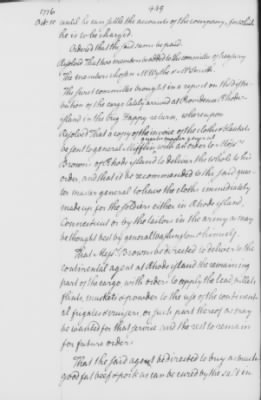 1776 449
Oct. 10 until he can settle the accounts of the company, for which
he is to be charged.
Ordered that the said sum be paid.
Resolved That two members be added to the committee of
The members chosen Mr Wythe & Mr Smith.
The secret committee brought in a report on the distri
bution of the cargo lately arrived at Providence Rhode
island in the brig Happy return, whereupon
Resolved That a copy of the invoice of the cloths & blankets
be sent to general Mifflin, quarter master general with an order to Messrs
Browns of Rhode island to deliver the whole to his
order, and that it be recommended to the said quar
ter master general to have the cloths immediately
made up for the soldiers either in Rhode island,
Connecticut or by the tailors in the army as may
be thought best by general Washington & himself.
That Messrs Browns be directed to deliver to the
continental agent at Rhode island the remaining
part of the cargo with orders to apply the lead, pistols
flints, muskets & powder to the use of the continent
al frigates & cruizers or such part thereof as may
be wanted for that service and the rest to remain
for future orders.
That the said agent be directed to buy as much
good fat beef & pork as can be cured by the salt on